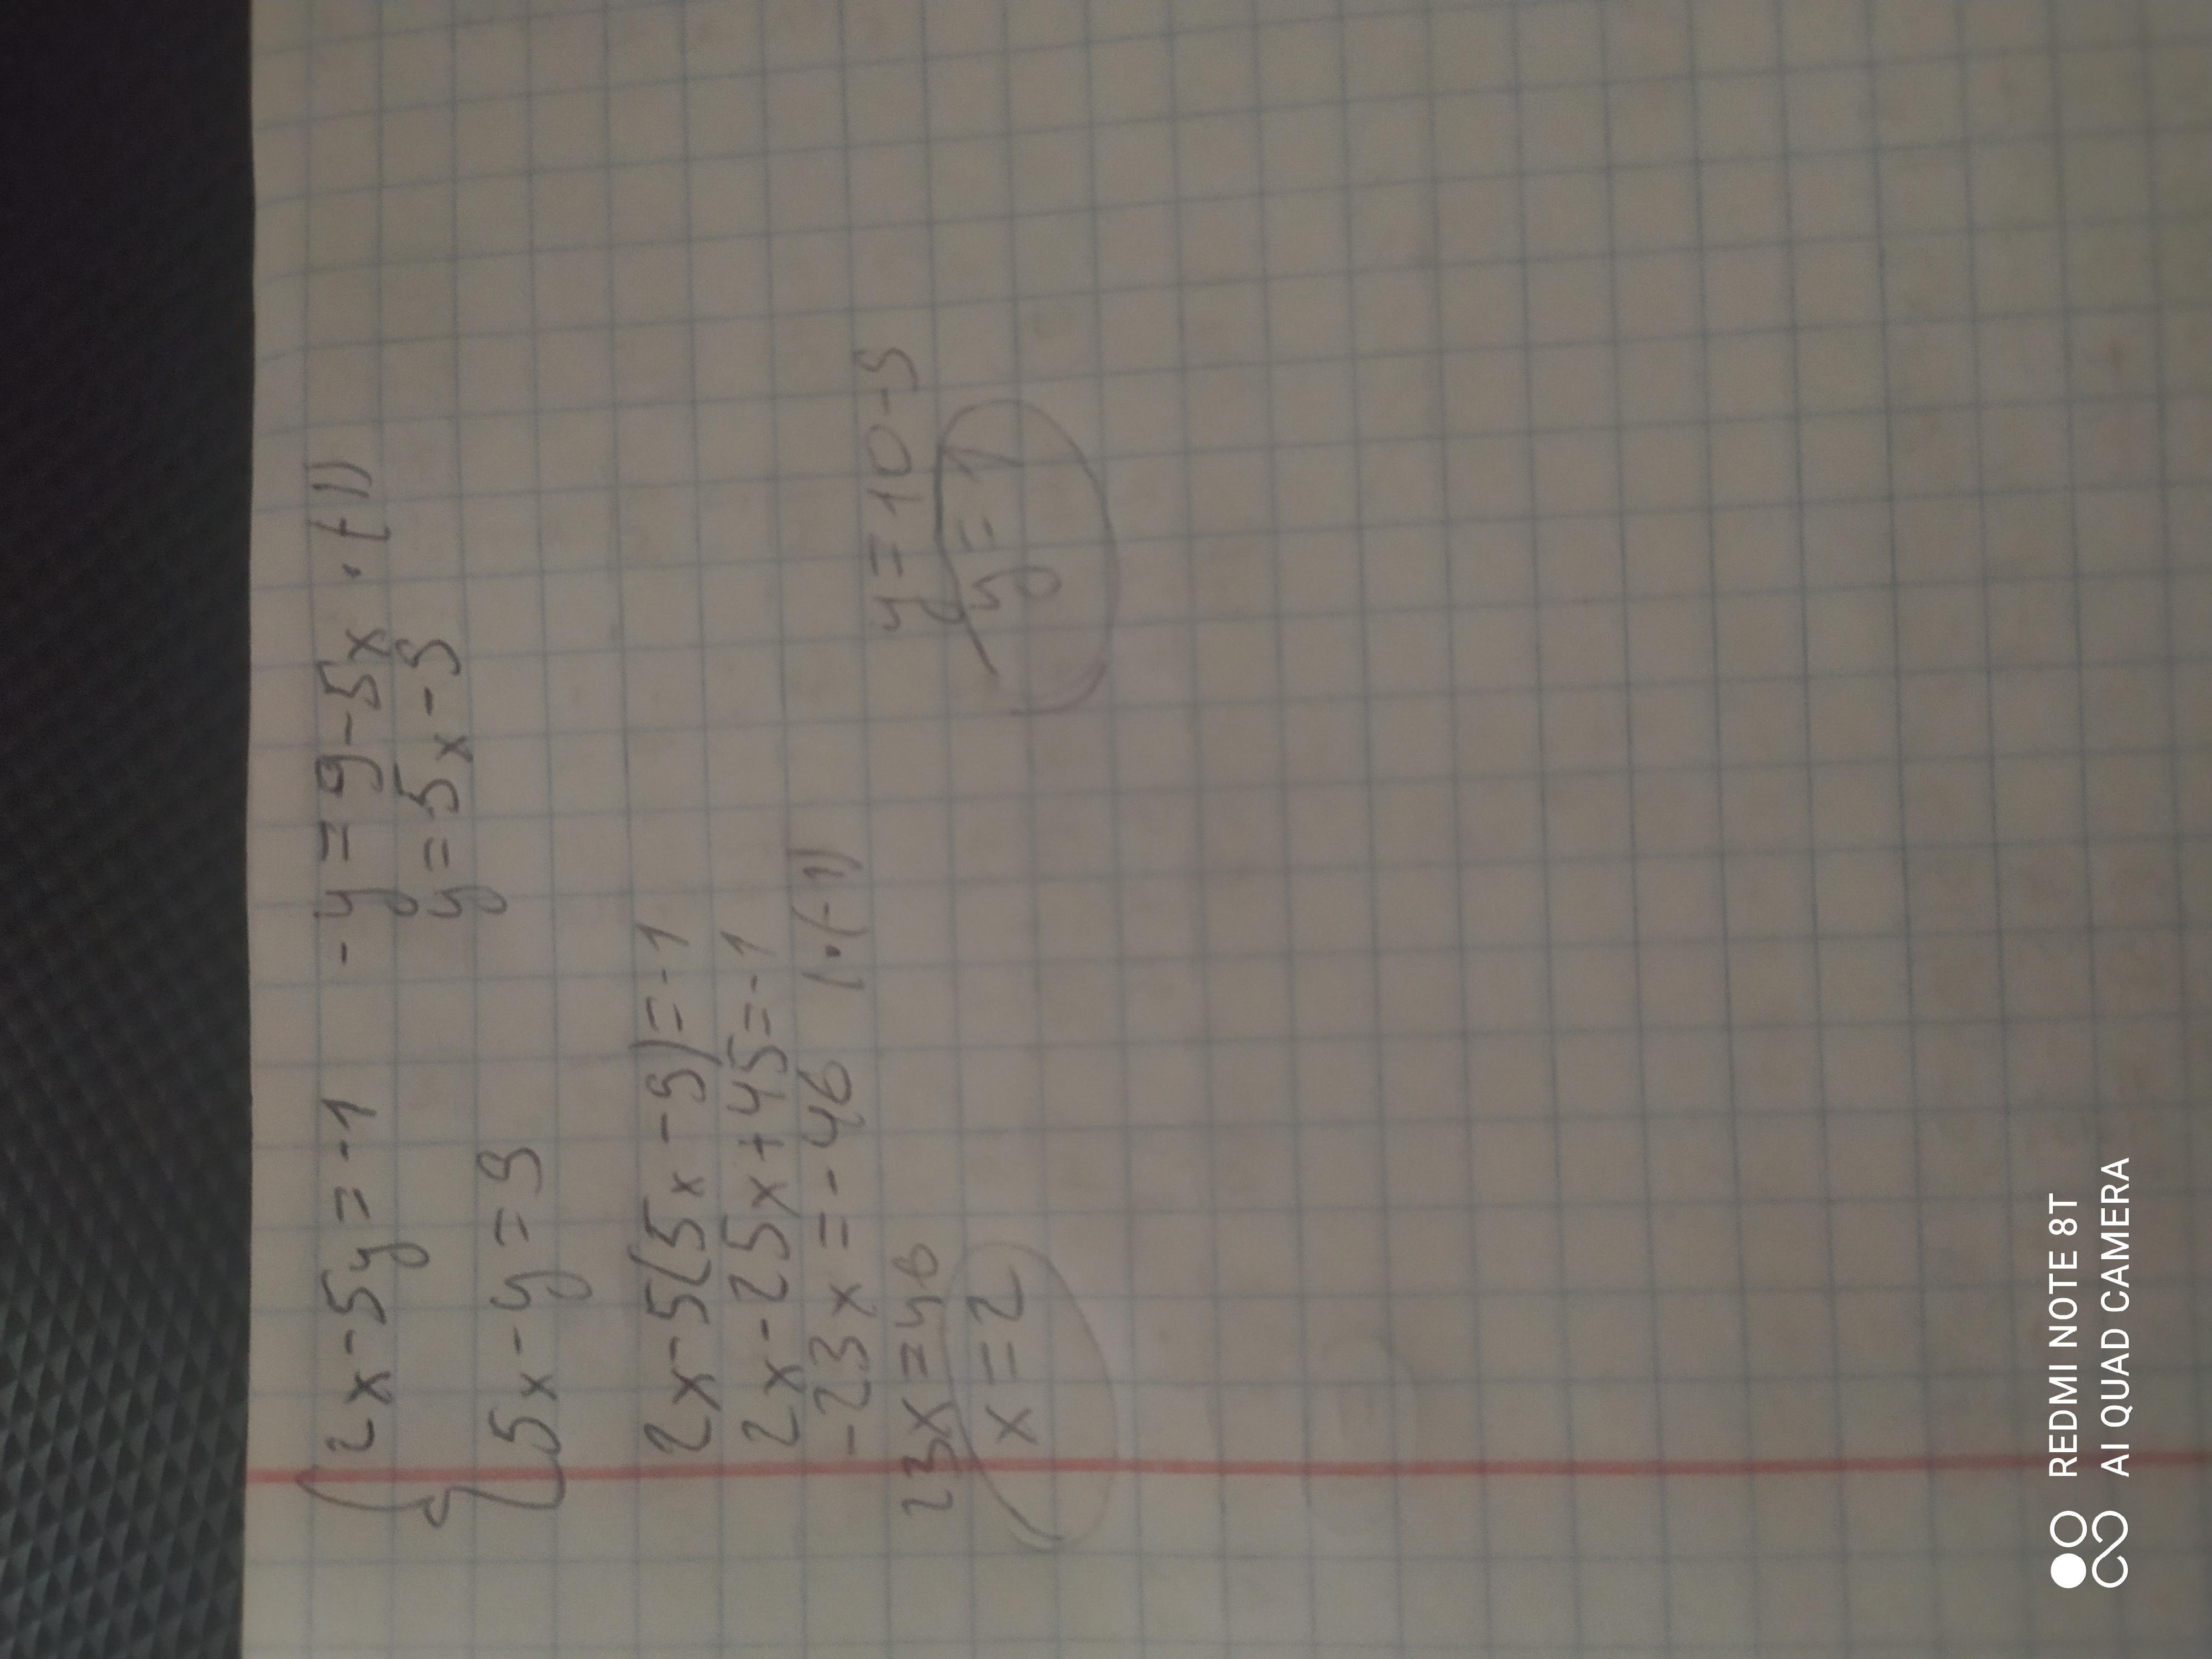 2x-5y=-1
5x-y=9
-y=9-5x ·(-1)
y=5x-9
2x-5(5x-9)=-1
2x-25x+45=-1
-23x=-46 |·(-1)
23x=46
x=2
y=10-9
y=1
REDMI NOTE 8T
AI QUAD CAMERA